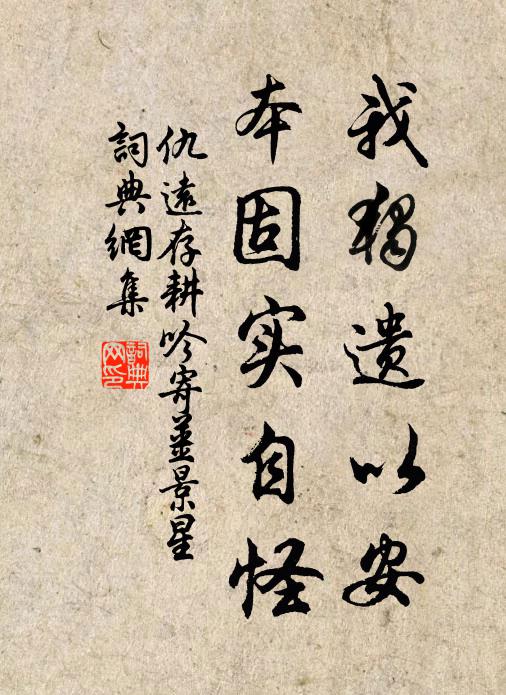 我獨遺以安
本固实自怪
仇遠存耕吟寄薑景星
詞典網集
詞典網印